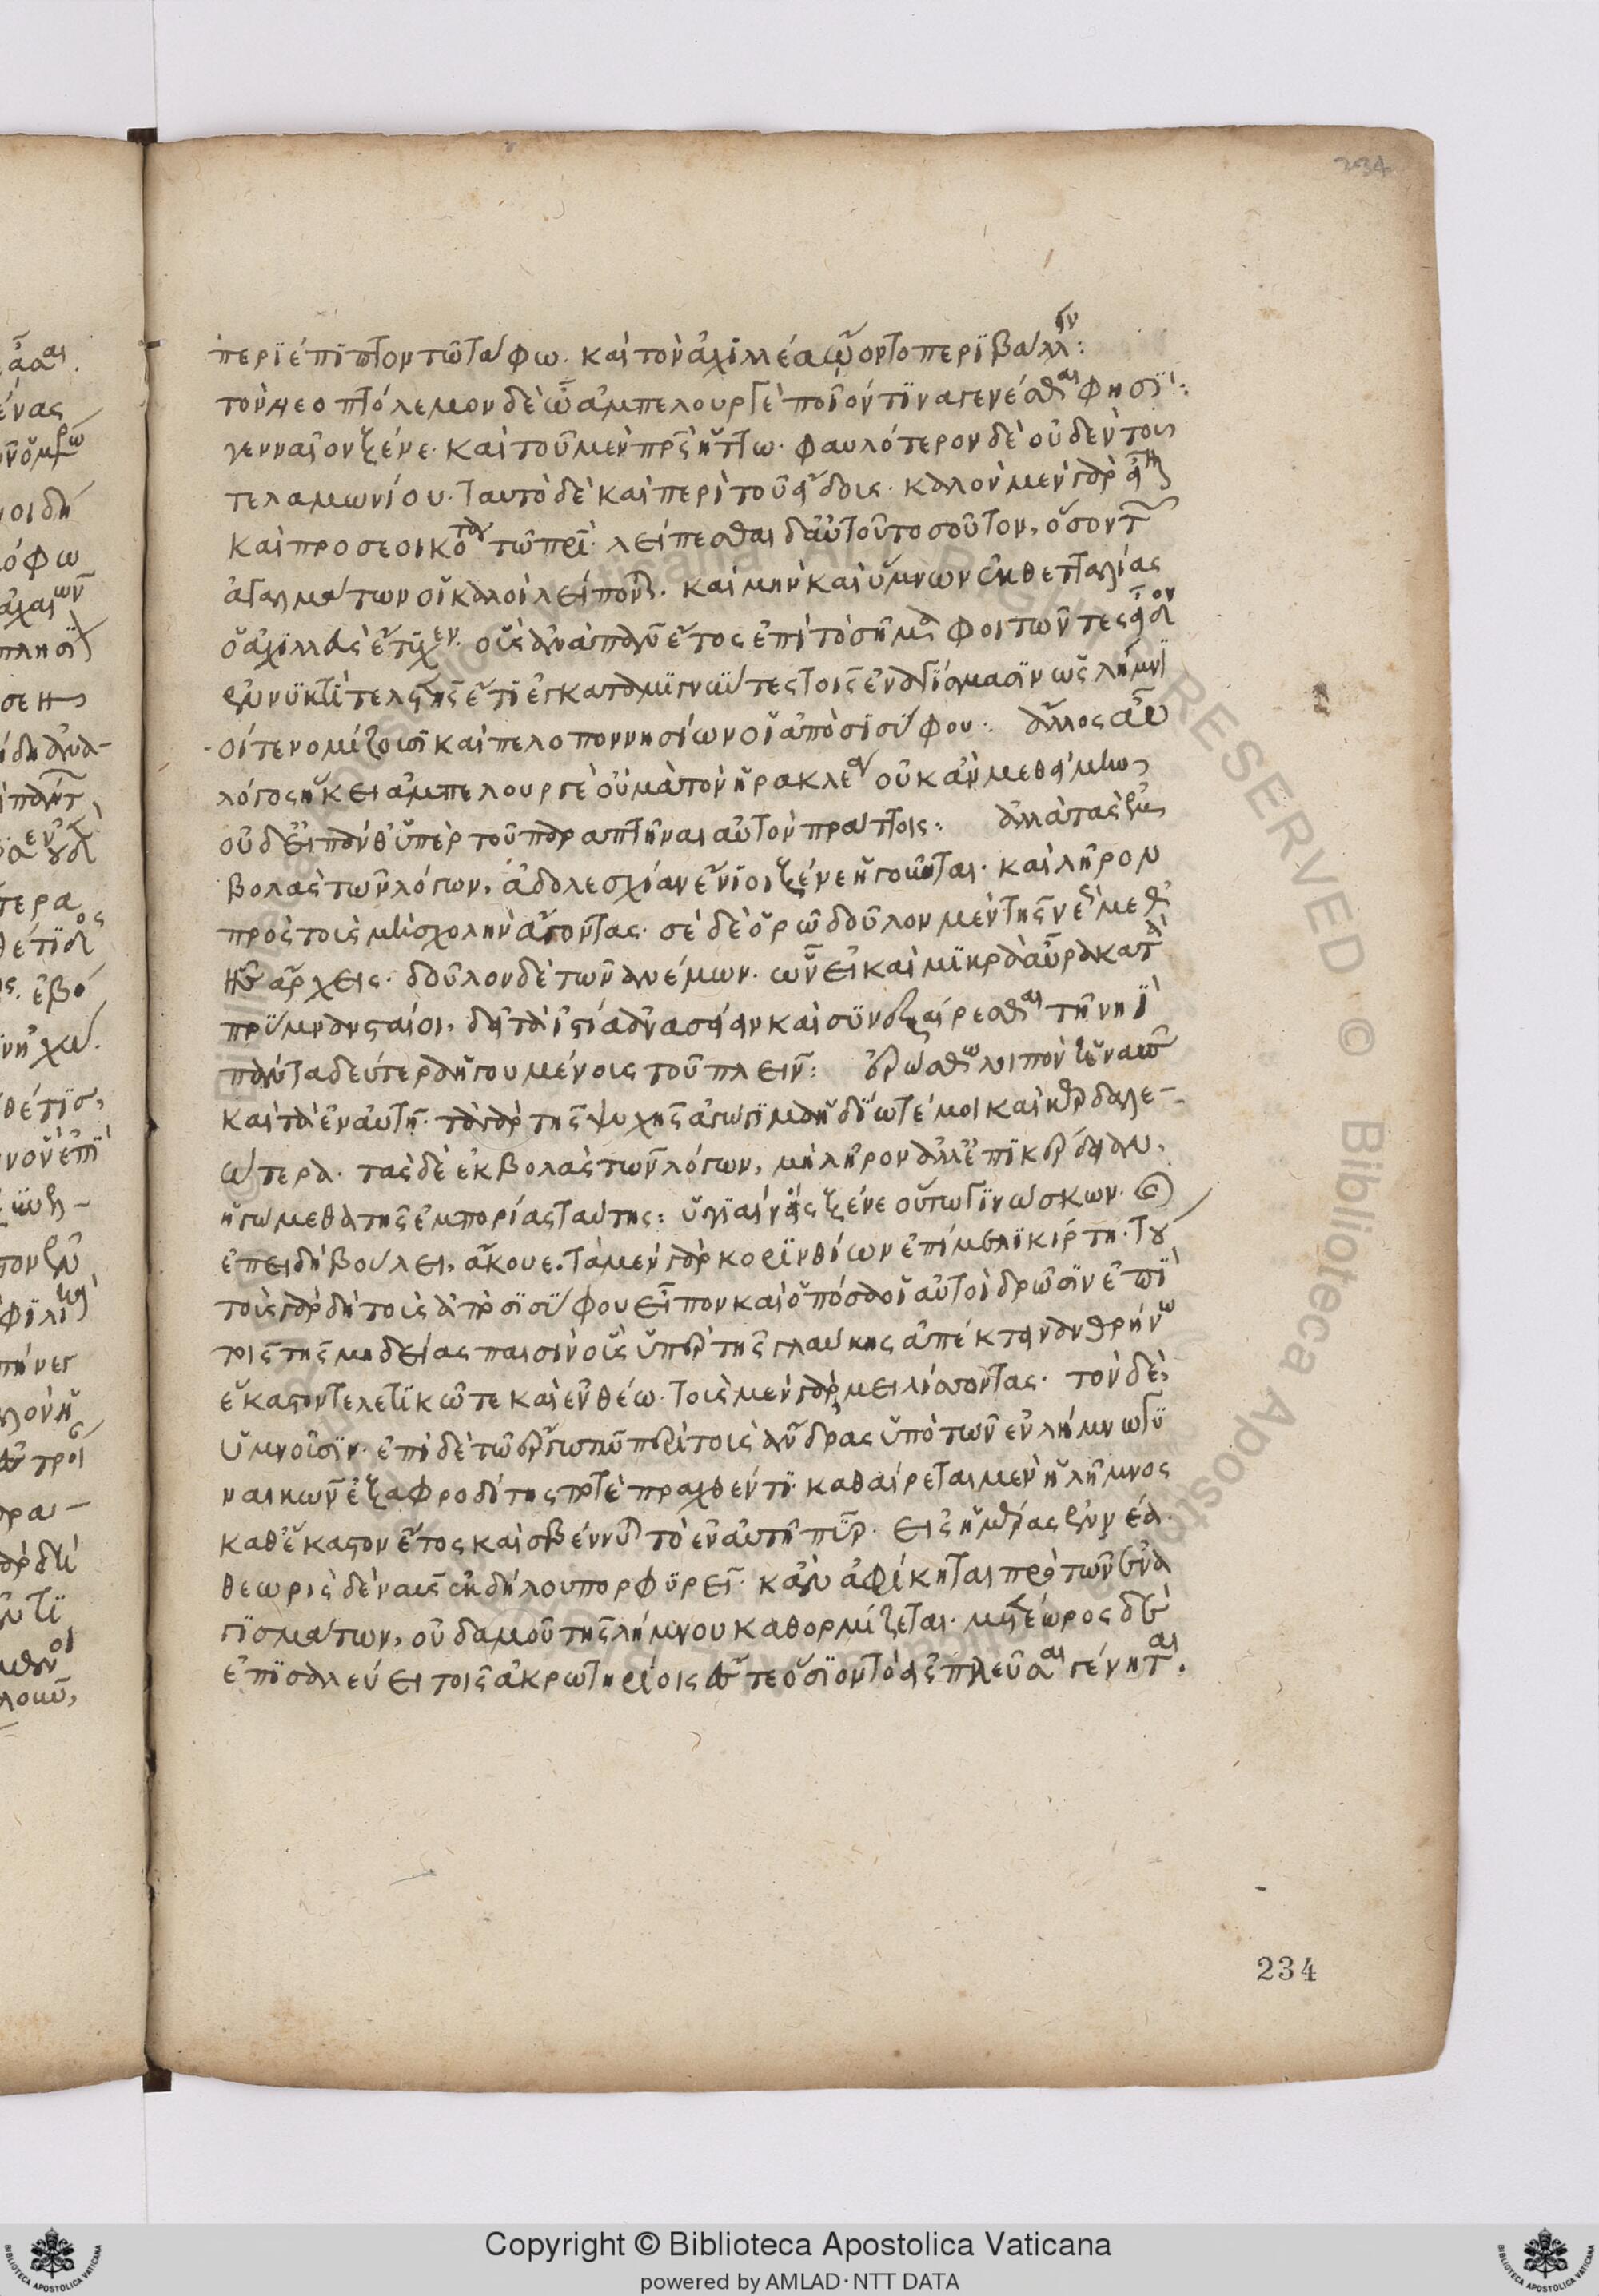 234
περιέπιπτον τῶ τάφω. καὶ τὸν ἀχιλλέα ὤοντο περιβάλλειν:
τὸν νεοπτόλεμον δὲ ὦ ἀμπελουργὲ ποῖόν τινα γενέσθαι φησί:
γενναῖον ξένε. καὶ τοῦ μὲν πρς ἥττω. φαυλότερον δὲ οὐδὲν τοῦ
τελαμωνίου. ταυτὸ δὲ καὶ περὶ τοῦ εἴδους. καλὸν μὲν γὰρ εἶναι
καὶ προσεοικότα τῶ πρί. λείπεσθαι δ' αὐτοῦ τοσοῦτον, ὅσον τῶν
ἀγαλμάτων οἱ καλοὶ λείπονται. καὶ μὴν καὶ ὕμνων ἐκ θετταλίας
ὁ ἀχιλλεὺς ἔτυχεν. οὓς ἀνὰ πᾶν ἔτος ἐπὶ τὸ σῆμα φοιτῶντες ᾖδον
ἐν νυκτὶ τελετῆς τι ἐγκαταμιγνύντες τοῖς ἐναγίσμασιν ὡς λήμνι
οί τε νομίζουσι καὶ πελοποννησίων οἱ ἀπὸ σισύφου: ἄλλος αὖ
λόγος ἥκει ἀμπελουργὲ οὐ μὰ τὸν ἡρακλέα οὐκ ἂν μεθείμην
οὐδ' εἰ πάνθ' ὑπὲρ τοῦ παραπτῆναι αὐτὸν πράττοις: ἀλλὰ τὰς ἐκ
βολὰς τῶν λόγων, ἀδολεσχίαν ἔνιοι ξένε ἡγοῦνται. καὶ λῆρον
πρὸς τοὺς μὴ σχολὴν ἄγοντας. σὲ δὲ ὁρῶ δοῦλον μὲν τῆς νεὼς
ἧς ἄρχεις. δοῦλον δὲ τῶν ἀνέμων. ὧν εἰ καὶ μικρὰ αὔρα κατὰ
πρύμναν σταίη, δεῖ τὰ ἱστία ἀνασείειν καὶ συνεξαίρεσθαι τῆ νηὶ
πάντα δεύτερα ἡγουμένους τοῦ πλεῖν: ἐρρώσθω λοιπὸν ἡ ναῦς
καὶ τὰ ἐν αὐτῆ. τὰ γὰρ τῆς ψυχῆς ἀγώγιμα ἡδίω τέ μοι καὶ κερδαλε-
ώτερα. τὰς δὲ ἐκβολὰς τῶν λόγων, μὴ λῆρον ἀλλ' ἐπικέρδειαν,
ἡγώμεθα τῆς ἐμπορίας ταύτης: ὑγιαίνεις ξένε οὕτω γινώσκων. καὶ
ἐπειδὴ βούλει, ἄκουε. τὰ μὲν γὰρ κορινθίων ἐπὶ μελικέρτη. τού
τους γὰρ δὴ τοὺς ἀπὸ σισύφου εἶπον καὶ ὁπόσα οἱ αὐτοὶ δρῶσιν ἐπὶ
τοῖς τῆς μηδείας παισὶν οὓς ὑπὲρ τῆς γλαύκης ἀπέκτειναν θρήνω
εἴκαστο τελετικῶ τε καὶ ἐνθέω. τοὺς μὲν γὰρ μειλίσσονται. τὸν δὲ
ὑμνοῦσιν. ἐπὶ δὲ τῶ ἔργω τῶ περὶ τοὺς ἄνδρας ὑπὸ τῶν ἐν λήμνω γυ
ναικῶν ἐξ ἀφροδίτης ποτὲ πραχθέντι. καθαίρεται μὲν ἡ λῆμνος
καθ' ἕκαστον ἔτος καὶ σβέννυται τὸ ἐν αὐτῆ πῦρ. εἰς ἡμέρας ἐννέα.
θεωρὶς δὲ ναῦς ἐκ δήλου πυρφορεῖ. κἂν ἀφίκηται πρὸ τῶν ἐνα
γισμάτων, οὐδαμοῦ τῆς λήμνου καθορμίζεται. μετέωρος δὲ
ἐπισαλεύει τοῖς ἀκρωτηρίοις ἔς τε ὅσιον τὸ εἰσπλεῦσαι γένηται.
234